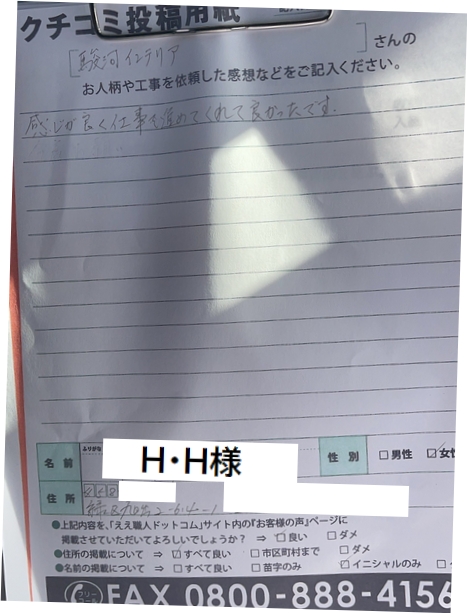 クチコミ投稿用紙
[駿河インテリア]さんの
お人柄や工事を依頼した感想などをご記入ください。
感じが良く仕事も進めてくれて良かったです。
ふりがな
名前 H・H様 性別 □男性 ☑女性
住所
●上記内容を、「ええ職人ドットコム」サイト内の『お客様の声』ページに
掲載させていただいてよろしいでしょうか? ⇒ □良い □ダメ
●住所の掲載について ⇒ ☑すべて良い □市区町村まで □ダメ
●名前の掲載について ⇒ □すべて良い □苗字のみ ☑イニシャルのみ
フリーコール FAX 0800-888-4156